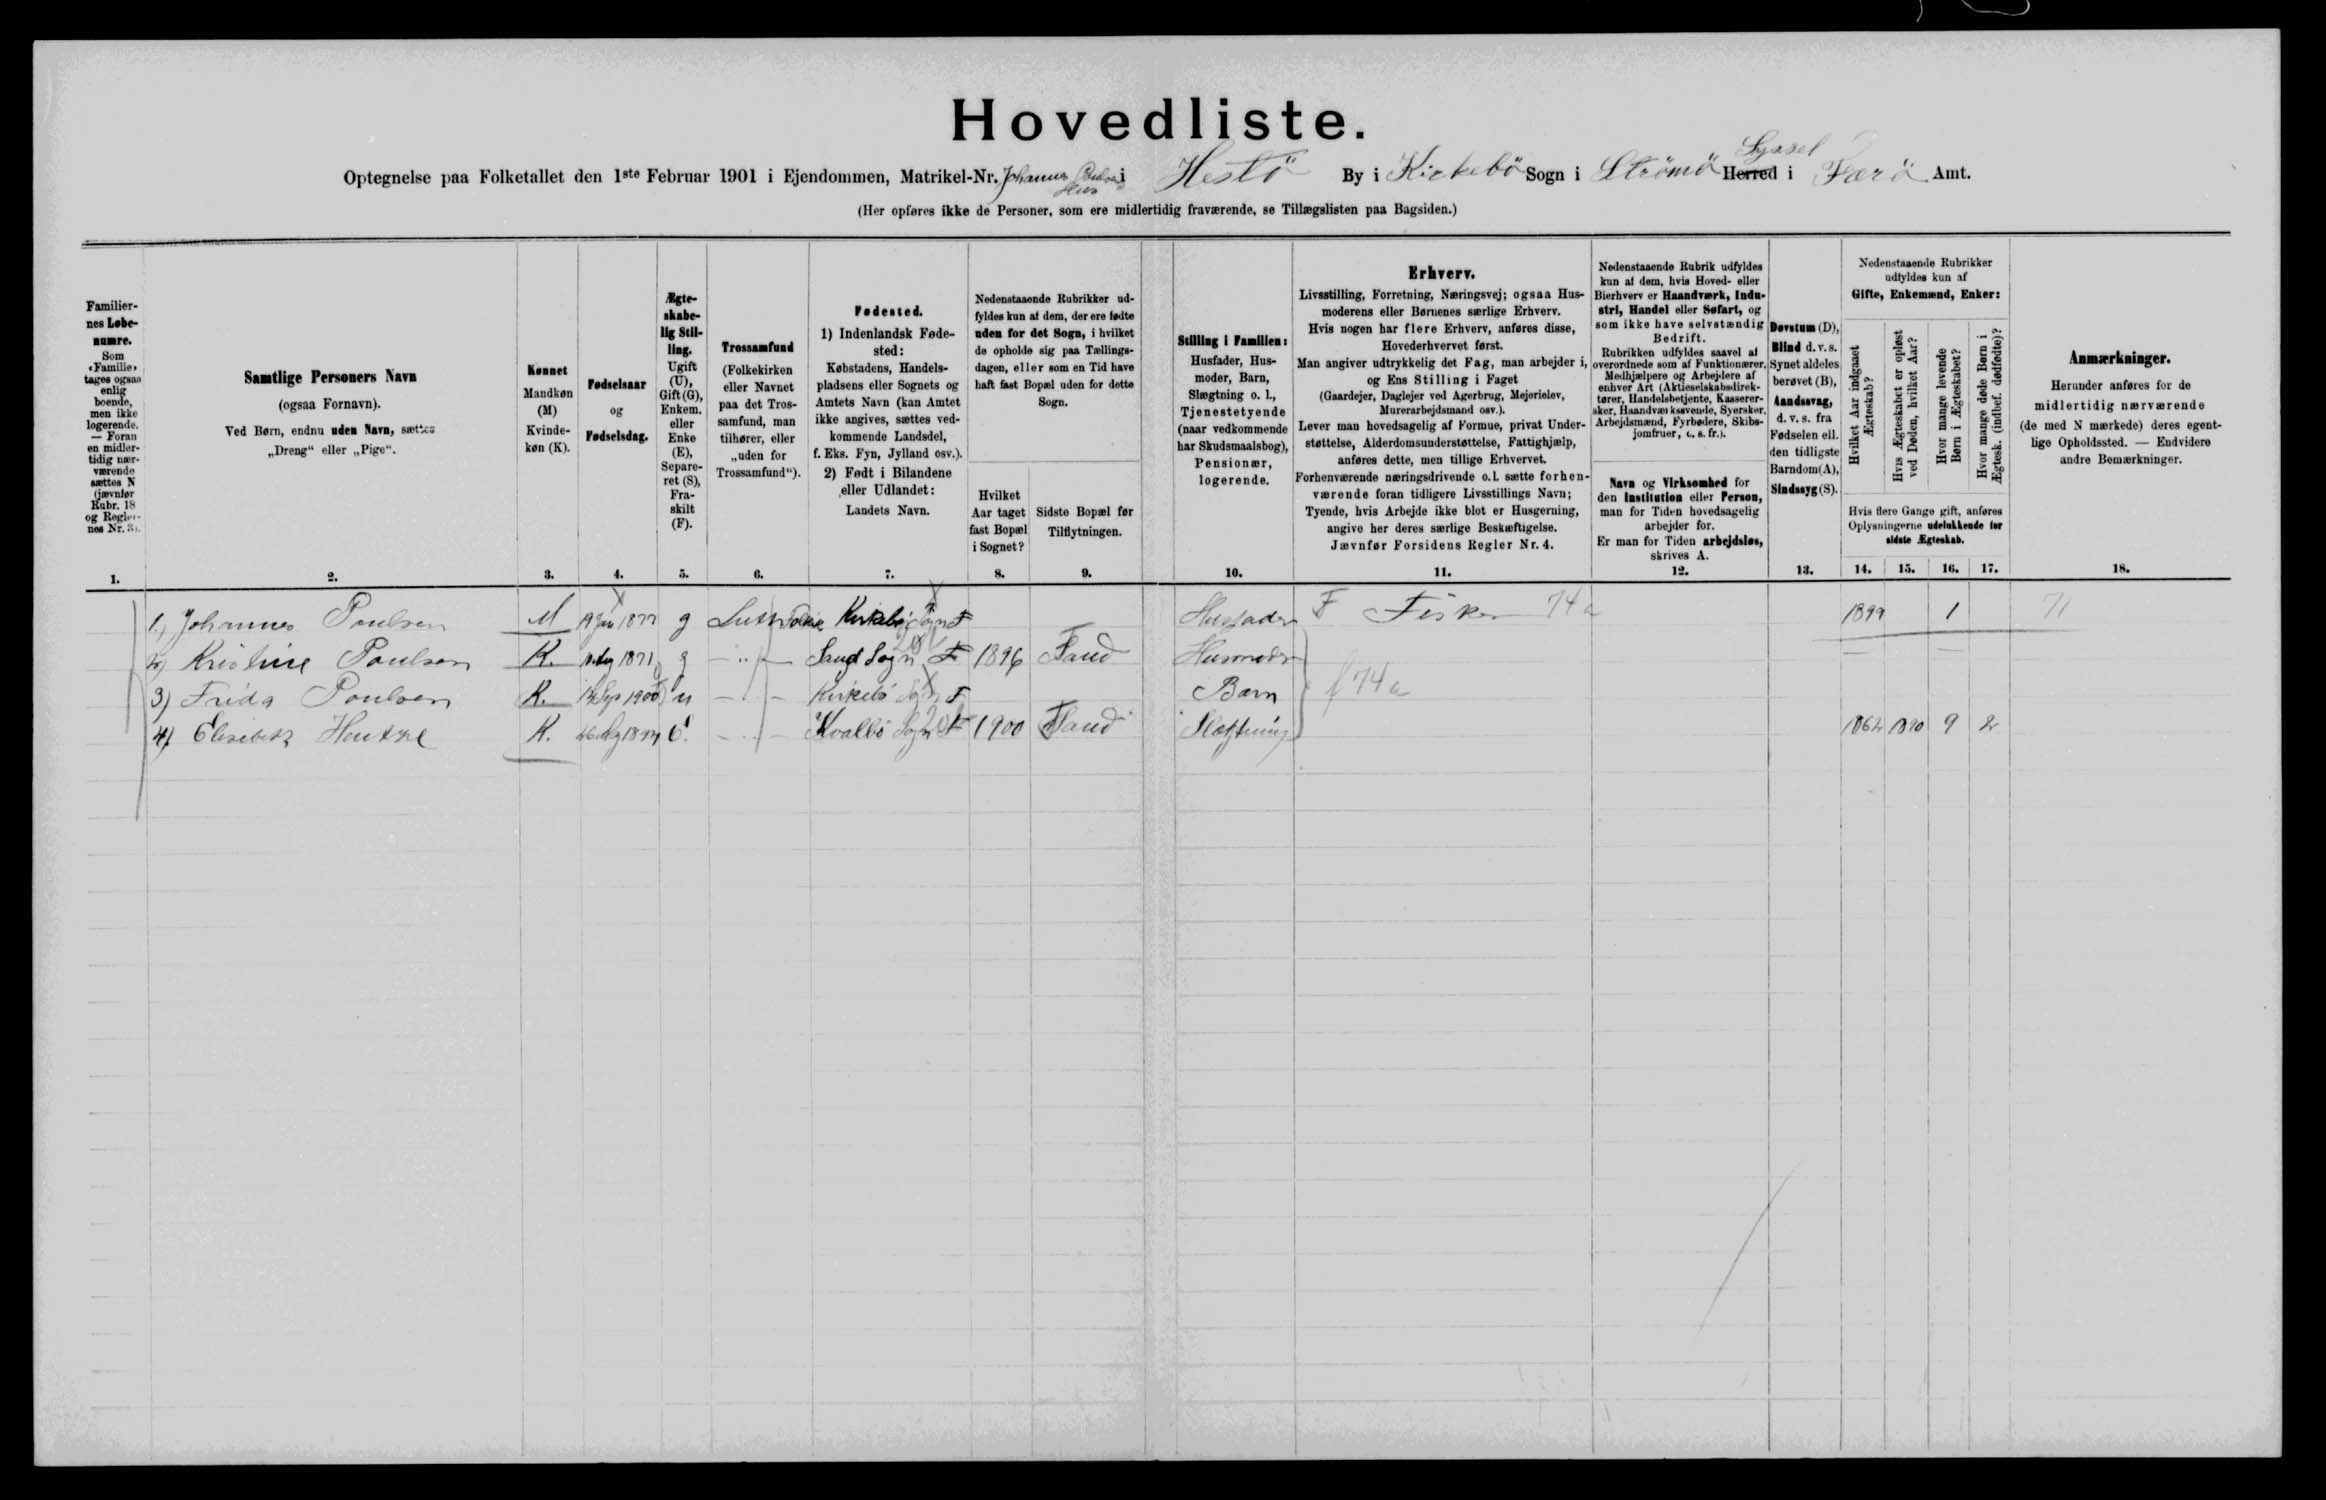 Hovedliste.
Syssel
Optegnelse paa Folketallet den 1ste Februar 1901 i Ejendommen, Matrikel-Nr. Johannes Poulsens Hus i Hestö By i Kirkebö Sogn i Strömö Herred i Færö Amt.
(Her opføres ikke de Personer, som ere midlertidig fraværende, se Tillægslisten paa Bagsiden.)
Familiernes Løbenumre.
Som «Familie» tages ogsaa enlig boende, men ikke logerende. — Foran en midlertidig nærværende sættes N (jævnfør Rubr. 18 og Reglernes Nr. 3).
Samtlige Personers Navn
(ogsaa Fornavn).
Ved Børn, endnu uden Navn, sættes
„Dreng“ eller „Pige“.
Kønnet
Mandkøn
(M)
Kvinde-
køn (K).
Fødselsaar
og
Fødselsdag.
Ægte-
skabe-
lig Stil-
ling.
Ugift
(U),
Gift (G),
Enkem.
eller
Enke
(E),
Separe-
ret (S),
Fra-
skilt
(F).
Trossamfund
(Folkekirken
eller Navnet
paa det Tros-
samfund, man
tilhører, eller
„uden for
Trossamfund“).
Fødested.
1) Indenlandsk Føde-
sted:
Købstadens, Handels-
pladsens eller Sognets og
Amtets Navn (kan Amtet
ikke angives, sættes ved-
kommende Landsdel,
f. Eks. Fyn, Jylland osv.).
2) Født i Bilandene
eller Udlandet:
Landets Navn.
Nedenstaaende Rubrikker ud-
fyldes kun af dem, der ere fødte
uden for det Sogn, i hvilket
de opholde sig paa Tællings-
dagen, eller som en Tid have
haft fast Bopæl uden for dette
Sogn.
Hvilket
Aar taget
fast Bopæl
i Sognet?
Sidste Bopæl før
Tilflytningen.
Stilling i Familien:
Husfader, Hus-
moder, Barn,
Slægtning o. l.,
Tjenestetyende
(naar vedkommende
har Skudsmaalsbog),
Pensionær,
logerende.
Erhverv.
Livsstilling, Forretning, Næringsvej; ogsaa Hus-
moderens eller Børnenes særlige Erhverv.
Hvis nogen har flere Erhverv, anføres disse,
Hovederhvervet først.
Man angiver udtrykkelig det Fag, man arbejder i,
og Ens Stilling i Faget
(Gaardejer, Daglejer ved Agerbrug, Mejerielev,
Murerarbejdsmand osv.).
Lever man hovedsagelig af Formue, privat Under-
støttelse, Alderdomsunderstøttelse, Fattighjælp,
anføres dette, men tillige Erhvervet.
Forhenværende næringsdrivende o. l. sætte forhen-
værende foran tidligere Livsstillings Navn;
Tyende, hvis Arbejde ikke blot er Husgerning,
angive her deres særlige Beskæftigelse.
Jævnfør Forsidens Regler Nr. 4.
Nedenstaaende Rubrik udfyldes
kun af dem, hvis Hoved- eller
Bierhverv er Haandværk, Indu-
stri, Handel eller Søfart, og
som ikke have selvstændig
Bedrift.
Rubrikken udfyldes saavel af
overordnede som af Funktionærer,
Medhjælpere og Arbejdere af
enhver Art (Aktieselskabsdirek-
tører, Handelsbetjente, Kasserer-
sker, Haandværkssvende, Syersker,
Arbejdsmænd, Fyrbødere, Skibs-
jomfruer, o. s. fr.).
Navn og Virksomhed for
den Institution eller Person,
man for Tiden hovedsagelig
arbejder for.
Er man for Tiden arbejdsløs,
skrives A.
Døvstum (D),
Blind d. v. s.
Synet aldeles
berøvet (B),
Aandssvag,
d. v. s. fra
Fødselen ell.
den tidligste
Barndom (A),
Sindssyg (S).
Nedenstaaende Rubrikker
udfyldes kun af
Gifte, Enkemænd, Enker:
Hvilket Aar indgaaet
Ægteskab?
Hvis Ægteskabet er opløst
ved Døden, hvilket Aar?
Hvor mange levende
Børn i Ægteskabet?
Hvor mange døde Børn i
Ægtesk. (indbef. dødfødte)?
Hvis flere Gange gift, anføres
Oplysningerne udelukkende for
sidste Ægteskab.
Anmærkninger.
Herunder anføres for de
midlertidig nærværende
(de med N mærkede) deres egent-
lige Opholdssted. — Endvidere
andre Bemærkninger.
1. 2. 3. 4. 5. 6. 7. 8. 9. 10. 11. 12. 13. 14. 15. 16. 17. 18.
1.) Johannes Poulsen M 19 Jan 1877 g Luth Folkek Kirkebö Sogn F Husfader F Fisker 74a 1899 1 71
2) Kristine Poulsen K. 1871 g — " — Sand Sogn F 1896 Sand Husmoder
3) Frida Poulsen K. Sep 1900 u — " — Kirkebö Sogn F Barn f 74a
4) Elisabeth K. E. — " — Kvalbö Sogn F 1900 Sand Slægtning 1862 1890 9 2